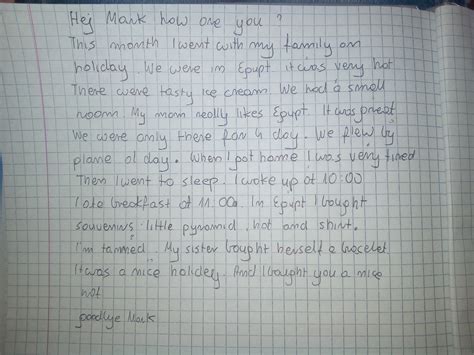 Hej Mark how are you ?
This month I went with my family on
holiday. We were in Egupt it was very hot
There were tasty ice cream. We had a small
room. My mom really likes Egupt. It was great
We were only there for 4 day. We flew by
plane al day. When I got home I was very tired
Then I went to sleep. I woke up at 10:00
I ate breakfast at 11:00. In Egupt I bought
souvenirs little pyramid, hat and shirt.
I'm tanned. My sister bought herself a bracelet
It was a nice holidey. And I bought you a nice
hat
goodbye Mark